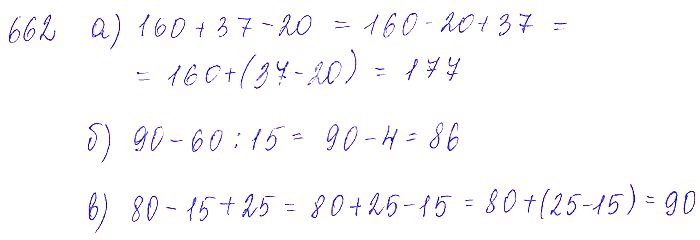 662 а) 160 + 37 - 20 = 160 - 20 + 37 =
= 160 + (37 - 20) = 177
б) 90 - 60 : 15 = 90 - 4 = 86
в) 80 - 15 + 25 = 80 + 25 - 15 = 80 + (25 - 15) = 90